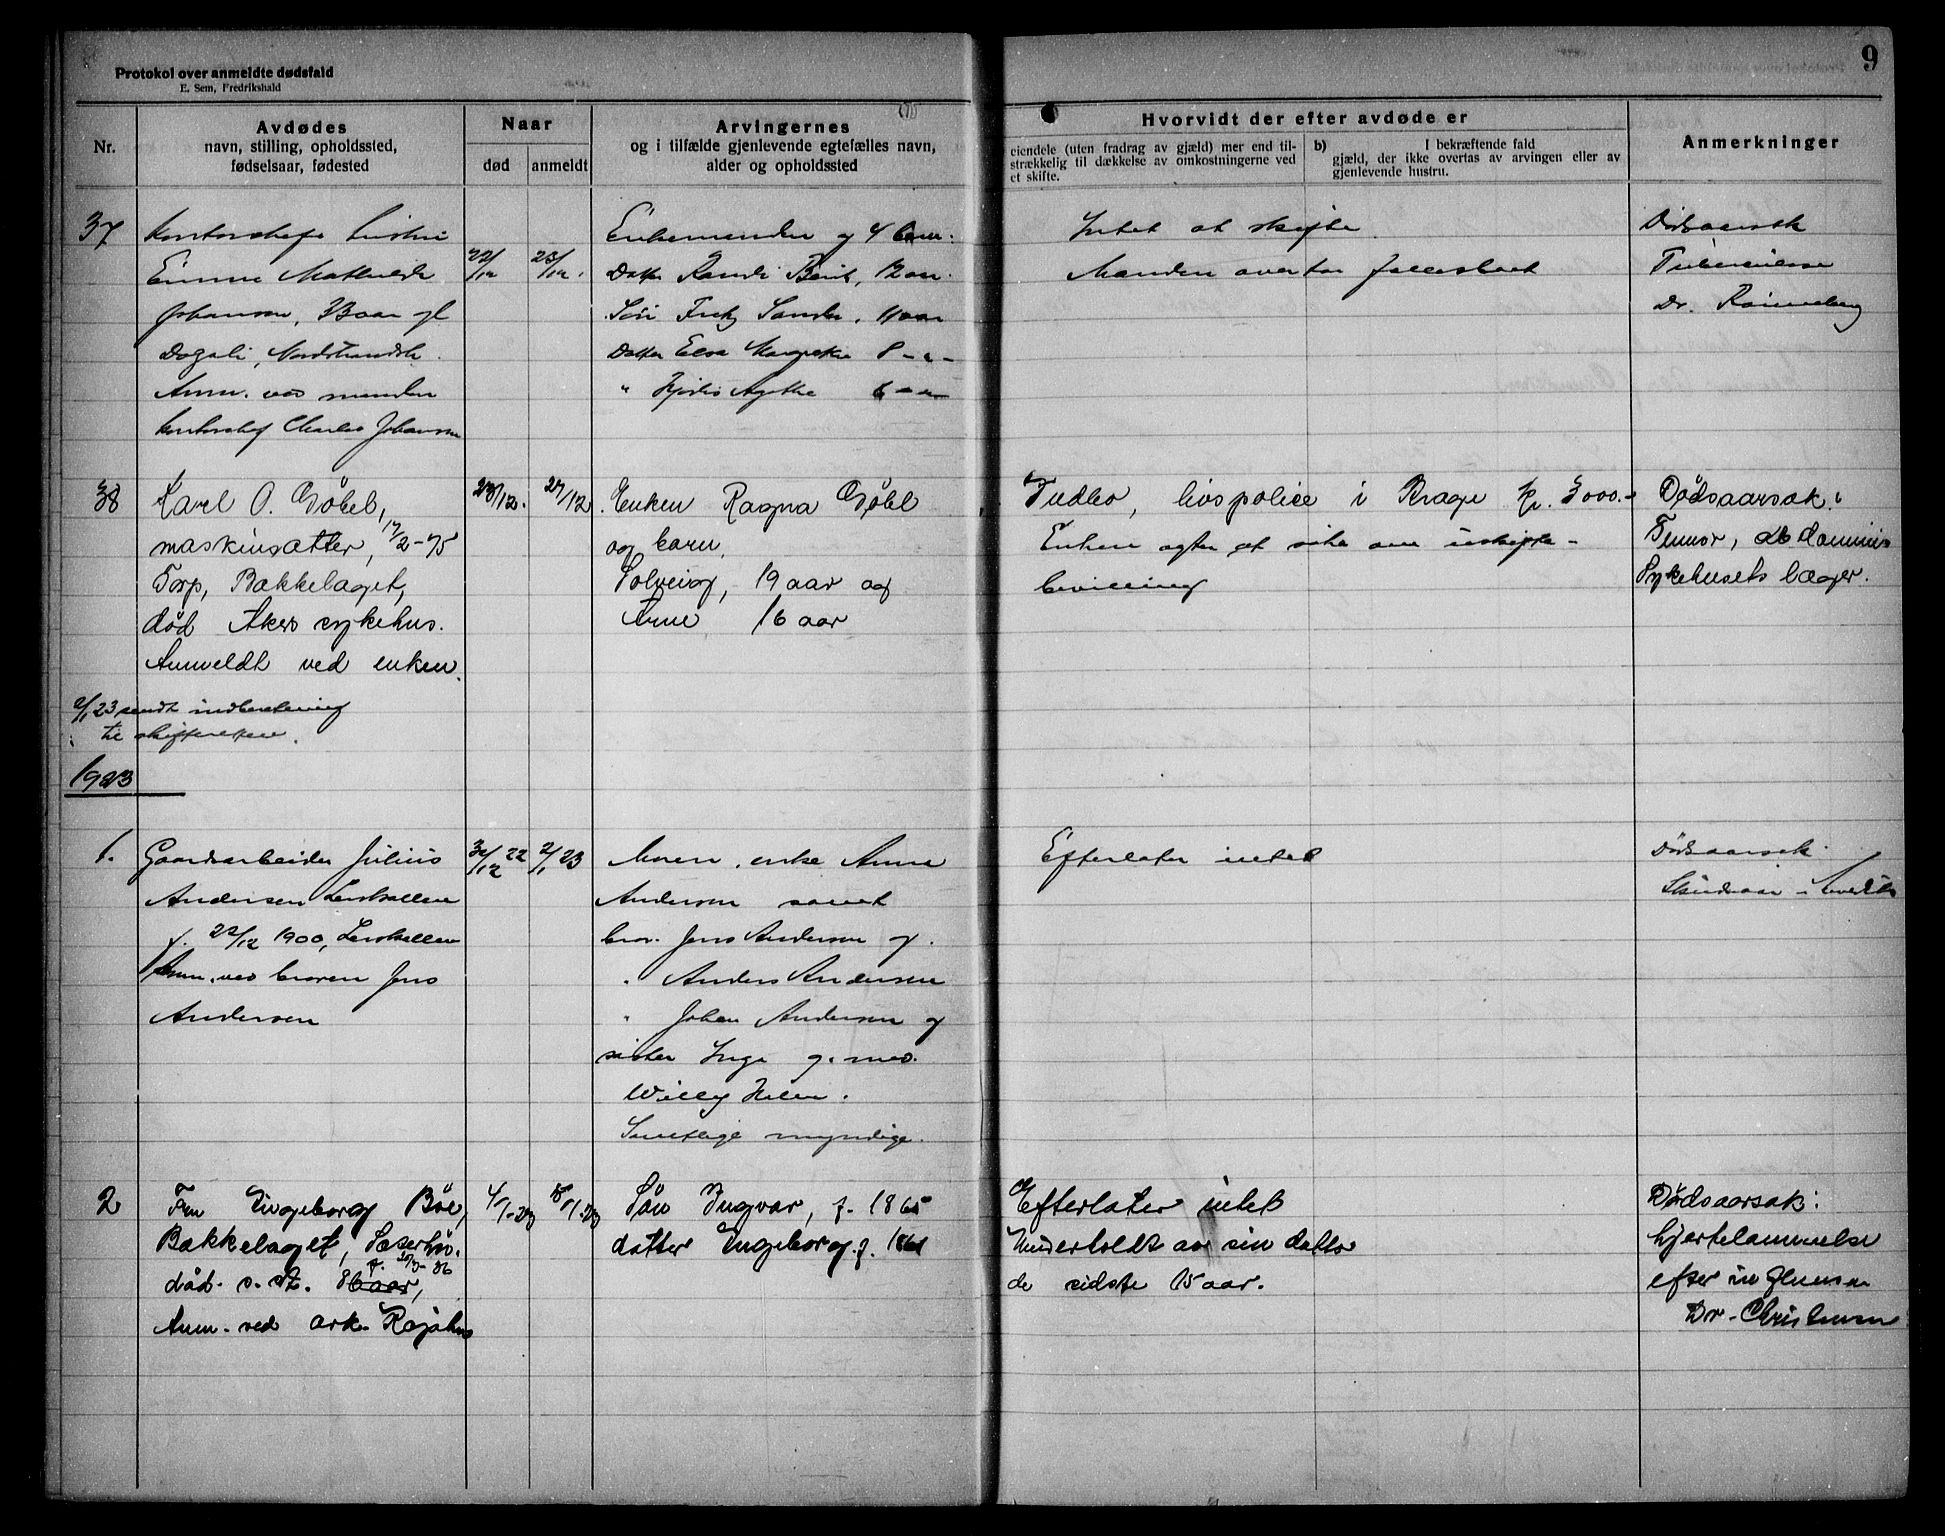 Protokol over anmeldte dødsfald
E. Sem, Fredrikshald
9
Nr.
Avdødes
navn, stilling, opholdssted,
fødselsaar, fødested
Naar
død
anmeldt
Arvingernes
og i tilfælde gjenlevende egtefælles navn,
alder og opholdssted
Hvorvidt der efter avdøde er
eiendele (uten fradrag av gjæld) mer end til-
strækkelig til dækkelse av omkostningerne ved
et skifte.
b) I bekræftende fald
gjæld, der ikke overtas av arvingen eller av
gjenlevende hustru.
Anmerkninger
37
Kontorchefs hustru
Emma Mathilde
Johansen, 33 aar gl
Dogali, Nordstrandsh.
Anm. ved manden
kontorchef Charles Johansen
22/12
23/12.
Enkemanden og 4 barn.
Datter Randi Berit, 12 aar.
Søn Fritz Sander, 11 aar
Datter Elsa Margrethe 8 - " -
" Hjørdis Agathe 6 - " -
Intet at skifte.
Manden overtar fællesboet
Dødsaarsak
Tuberculose
Dr. Rønneberg
38
Karl O. Göbel,
maskinsætter, 17/2-75
Torp, Bækkelaget,
død Akers sykehus.
Anmeldt ved enken.
23/12.
27/12
Enken Ragna Gøbel
og barn,
Solveig, 19 aar og
Arne 16 aar
Indbo, livspolice i Brage kr. 3000.-
Enken agter at sitte i uskifte-
bevilling
Dødsaarsak:
Tumor, abdominis
Sykehusets læger.
2/1 23 sendt indberetning
til skifteretten.
1923
1.
Gaardsarbeider Julius
Andersen Lerskallen
f. 22/12 1900, Lerskallen
Anm. ved broren Jens
Andersen
22
2/1 23
Moren, enke Anna
Andersen samt
bror. Jens Andersen og.
" Anders Andersen
" Johan Andersen og
sister Inga g. med.
Willy
Samtlige myndige.
Efterlater intet
Dødsaarsak.
2
Fru Ingeborg Böe,
Bækkelaget, Sæterhu.
død. s. st. 86 aar,
f. 36
Anm. ved ark. Rojahn
4/1-23
5/1-23
Søn Ingvar, f. 1865
datter Ingeborg. f. 1861
Efterlater intet
Underholdt av sin datter
de sidste 15 aar.
Dødsaarsak:
hjertelammelse
efter influensa
Dr. Christensen